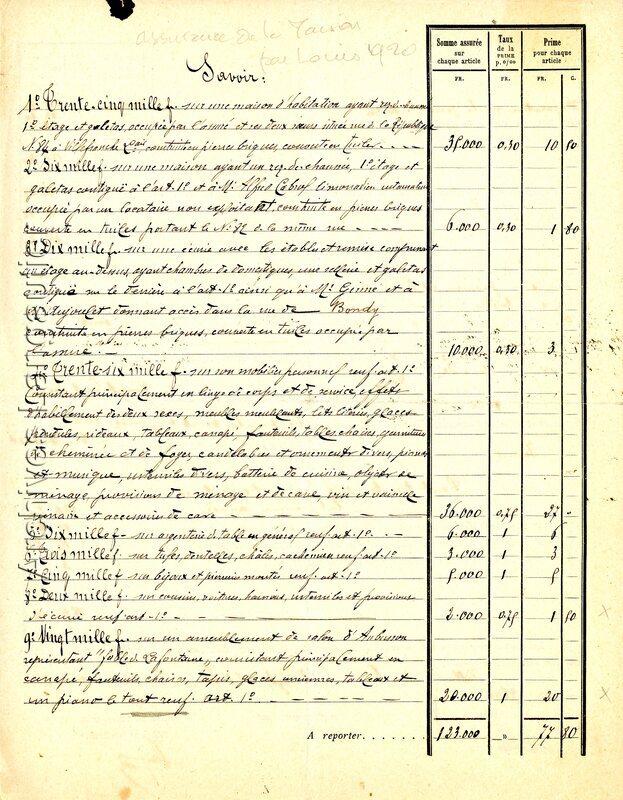 assurance de la Maison
par Louis 1920
Savoir:
Somme assurée sur chaque article
Taux de la PRIME p. 0/00
Prime pour chaque article
FR. FR. FR. C.
1º Trente-cinq mille f. sur une maison d'habitation ayant rez-de-chaussée
1er étage et galetas, occupée par l'assuré et ses deux sœurs située rue de la République
Nº 82 à Villefranche construite en pierres briques, couverte en tuiles 35.000 0,30 10 50
2º Six mille f. sur une maison ayant un rez de chaussée, 1er étage et
galetas contiguë à l'art. 1º et à Mr Alfred Cabrol
occupée par un locataire non exploitant, construite en pierres briques
couverte en tuiles portant le Nº 82 de la même rue 6.000 0,30 1 80
3º Dix mille f. sur une écurie avec les étables et remise comprenant
un étage au-dessus, ayant chambres de domestiques, une sellerie et galetas
contiguë sur le derrière à l'art. 1º ainsi qu'à Mr Ginné et à
donnant accès dans la rue de Bondy
construite en pierres briques, couverte en tuiles occupée par
l'assuré 10.000 0,30 3 "
4º Trente-six mille f. sur son mobilier personnel renf. art. 1º
consistant principalement en linge de corps et de service, effets
d'habillement des deux sexes, meubles meublants, lits literies, glaces
pendules, rideaux, tableaux, canapé, fauteuils, tables, chaises, garnitures
de cheminée et de foyer, candélabres et ornements divers, piano
et musique, ustensiles divers, batterie de cuisine, objets de
ménage, provisions de ménage et de cave, vin et vaisselle
vinaire et accessoires de cave 36.000 0,75 27 "
5º Six mille f. sur argenterie de table en général renf. art. 1º 6.000 1 6
6º Trois mille f. sur tulles, dentelles, châles, cachemire renf. art. 1º 3.000 1 3
7º Cinq mille f. sur bijoux et pierreries montés renf. art. 1º 5.000 1 5
8º Deux mille f. sur coussins, voitures, harnais, ustensiles et provisions
d'écurie renf. art. 1º 2.000 0,75 1 50
9º Vingt mille f. sur un ameublement de salon d'Aubusson
représentant "fable de Lafontaine", consistant principalement en
canapé, fauteuils, chaises, tapis, glaces anciennes, tableaux et
un piano le tout renf. art. 1º 20.000 1 20
A reporter 123.000 " 77 80